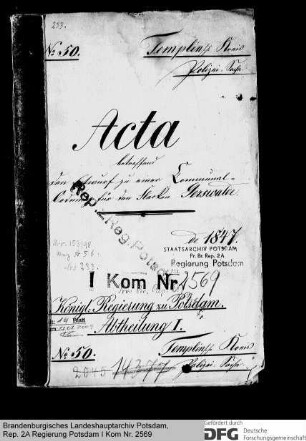 293.
No 50.
Templin Kreis
Polizei-Sache
Acta
betreffend
den Entwurf zu einer Communal-
Ordnung für den Flecken
de 1847.
STAATSARCHIV POTSDAM
Pr. Br. Rep. 2A
Regierung Potsdam
Rep. 2 Reg. Potsdam
I Kom Nr. 2569
Königl. Regierung zu Potsdam.
Abtheilung I.
No 50.
Templin Kreis
Polizei Sache
Brandenburgisches Landeshauptarchiv Potsdam,
Rep. 2A Regierung Potsdam I Kom Nr. 2569
Gefördert durch
DFG Deutsche
Forschungsgemeinschaft